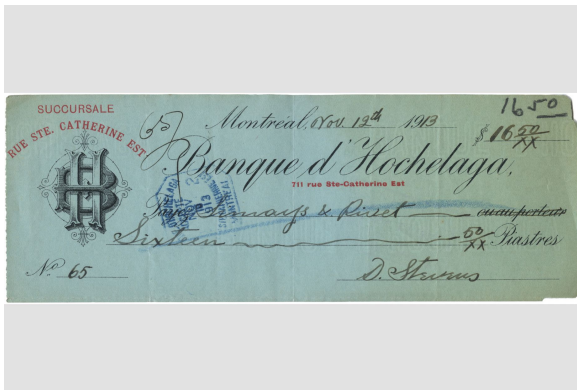 SUCCURSALE
RUE STE. CATHERINE EST
BH
16 50
Montréal, Nov. 12th 1913
$ 16 50/xx
Banque d'Hochelaga,
711 rue Ste-Catherine Est
Payez & Rivet ou au porteur
Sixteen 50/xx Piastres
No 65
D. Stevens